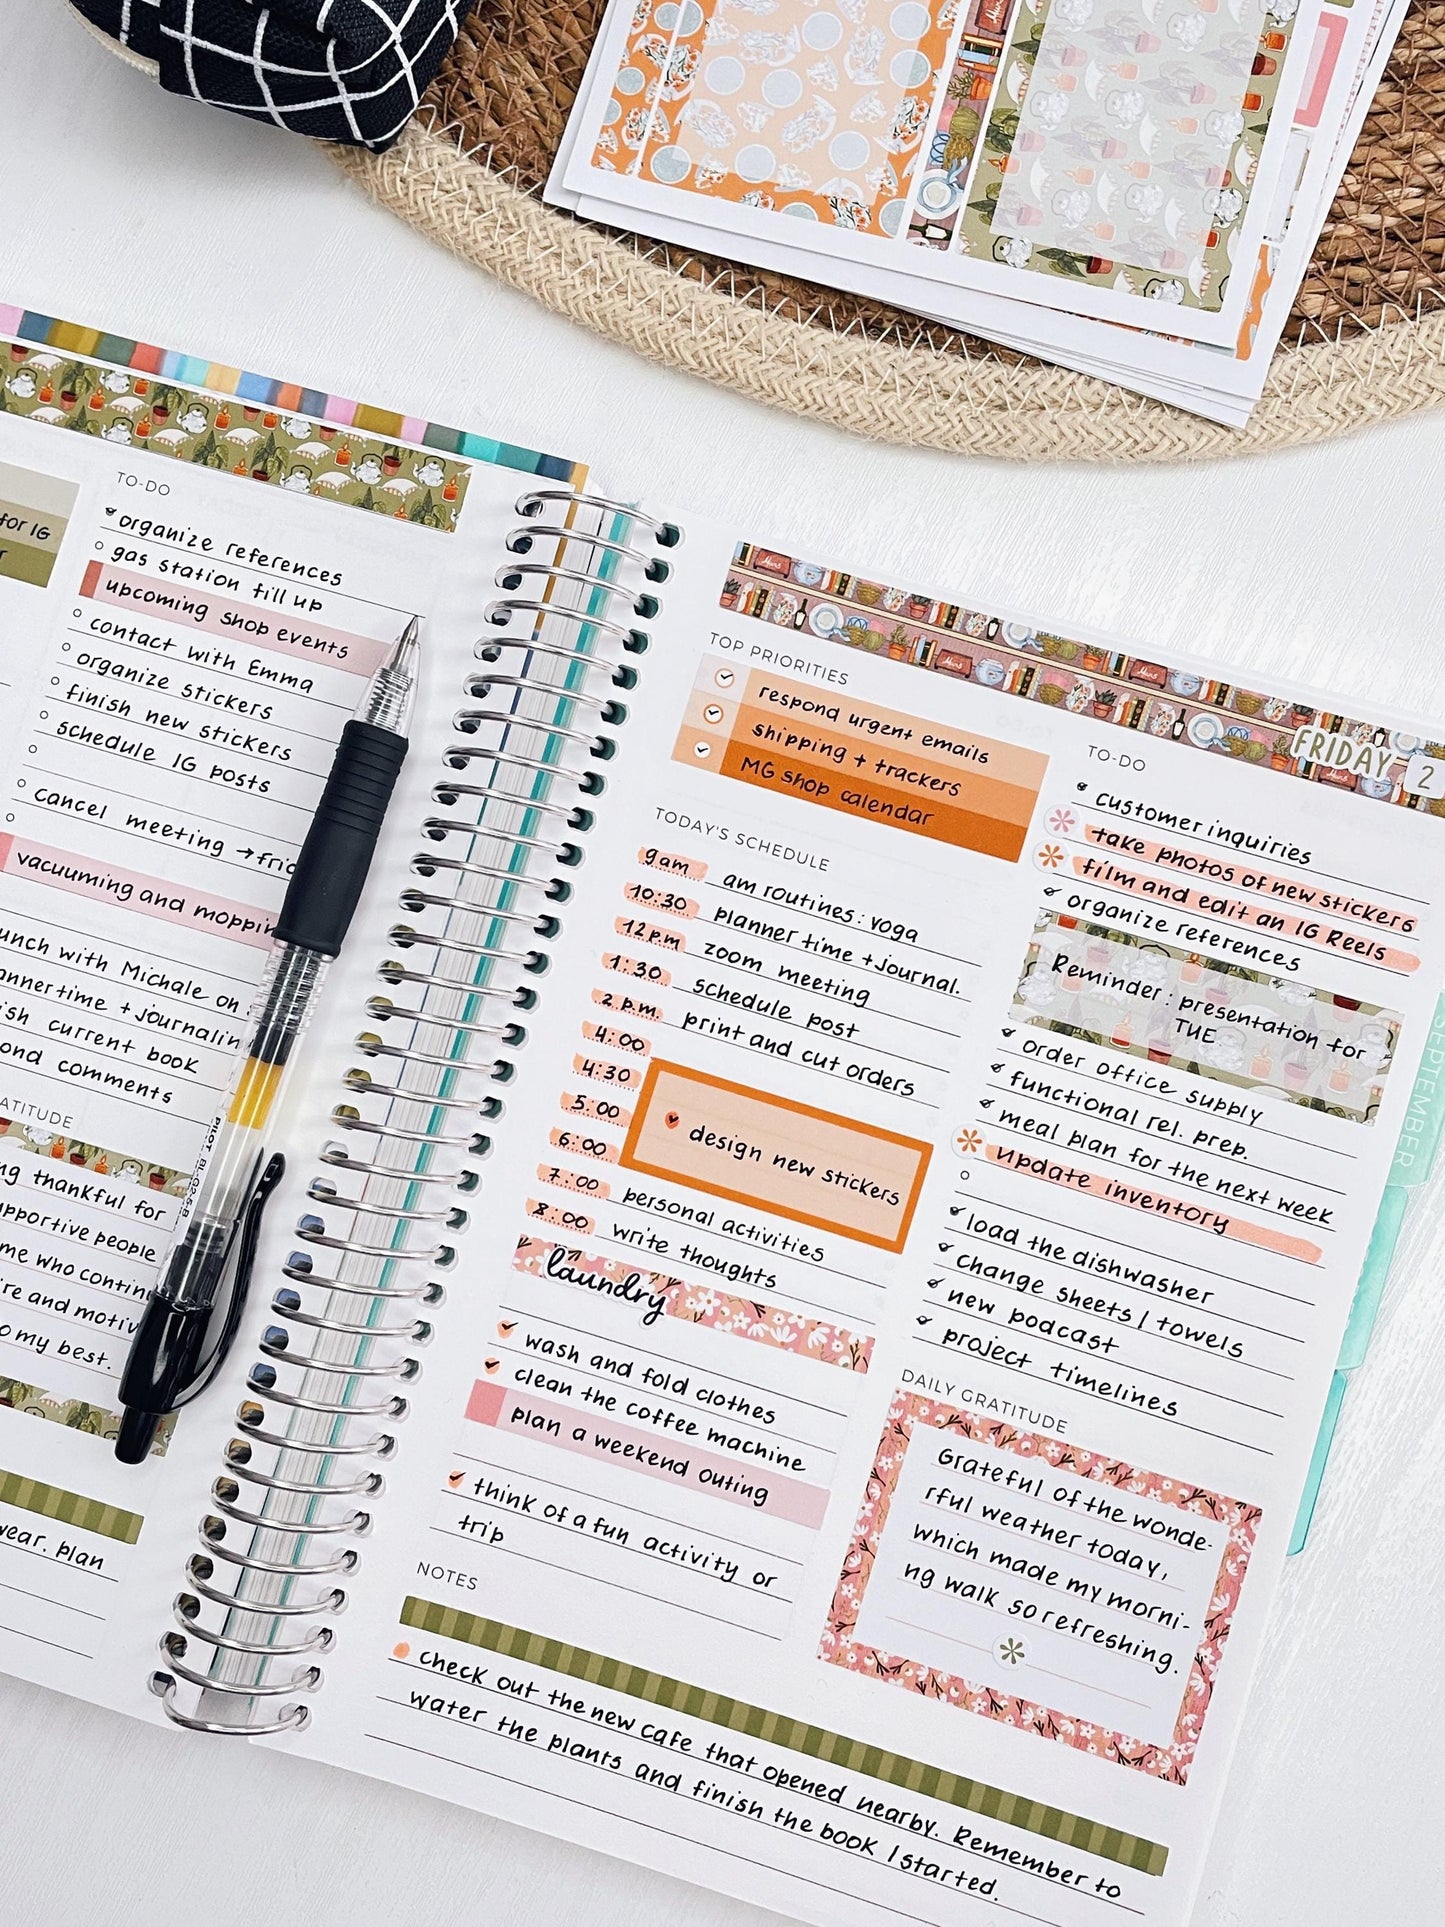 for IG
TO-DO
organize references
gas station fill up
upcoming shop events
contact with Emma
organize stickers
finish new stickers
schedule IG posts
cancel meeting → frid
vacuuming and moppin
unch with Michale on
anner time + journalin
ish current book
ond comments
ATITUDE
ng thankful for
upportive people
me who contin
ire and motiv
o my best.
wear. plan
PILOT BL-G2-5-B
TOP PRIORITIES
respond urgent emails
shipping + trackers
MG shop calendar
TODAY'S SCHEDULE
9am am routines: yoga
10:30 planner time + journal.
12pm zoom meeting
1:30 schedule post
2 p.m. print and cut orders
4:00
4:30
5:00 design new stickers
6:00
7:00 personal activities
8:00 write thoughts
laundry
wash and fold clothes
clean the coffee machine
plan a weekend outing
think of a fun activity or
trip
NOTES
check out the new cafe that opened nearby. Remember to
water the plants and finish the book I started.
FRIDAY 2
TO-DO
customer inquiries
take photos of new stickers
film and edit an IG Reels
organize references
Reminder: presentation for
TUE
order office supply
functional rel. prep.
meal plan for the next week
update inventory
load the dishwasher
change sheets / towels
new podcast
project timelines
DAILY GRATITUDE
Grateful of the wonde-
rful weather today,
which made my morni-
ng walk so refreshing.
SEPTEMBER